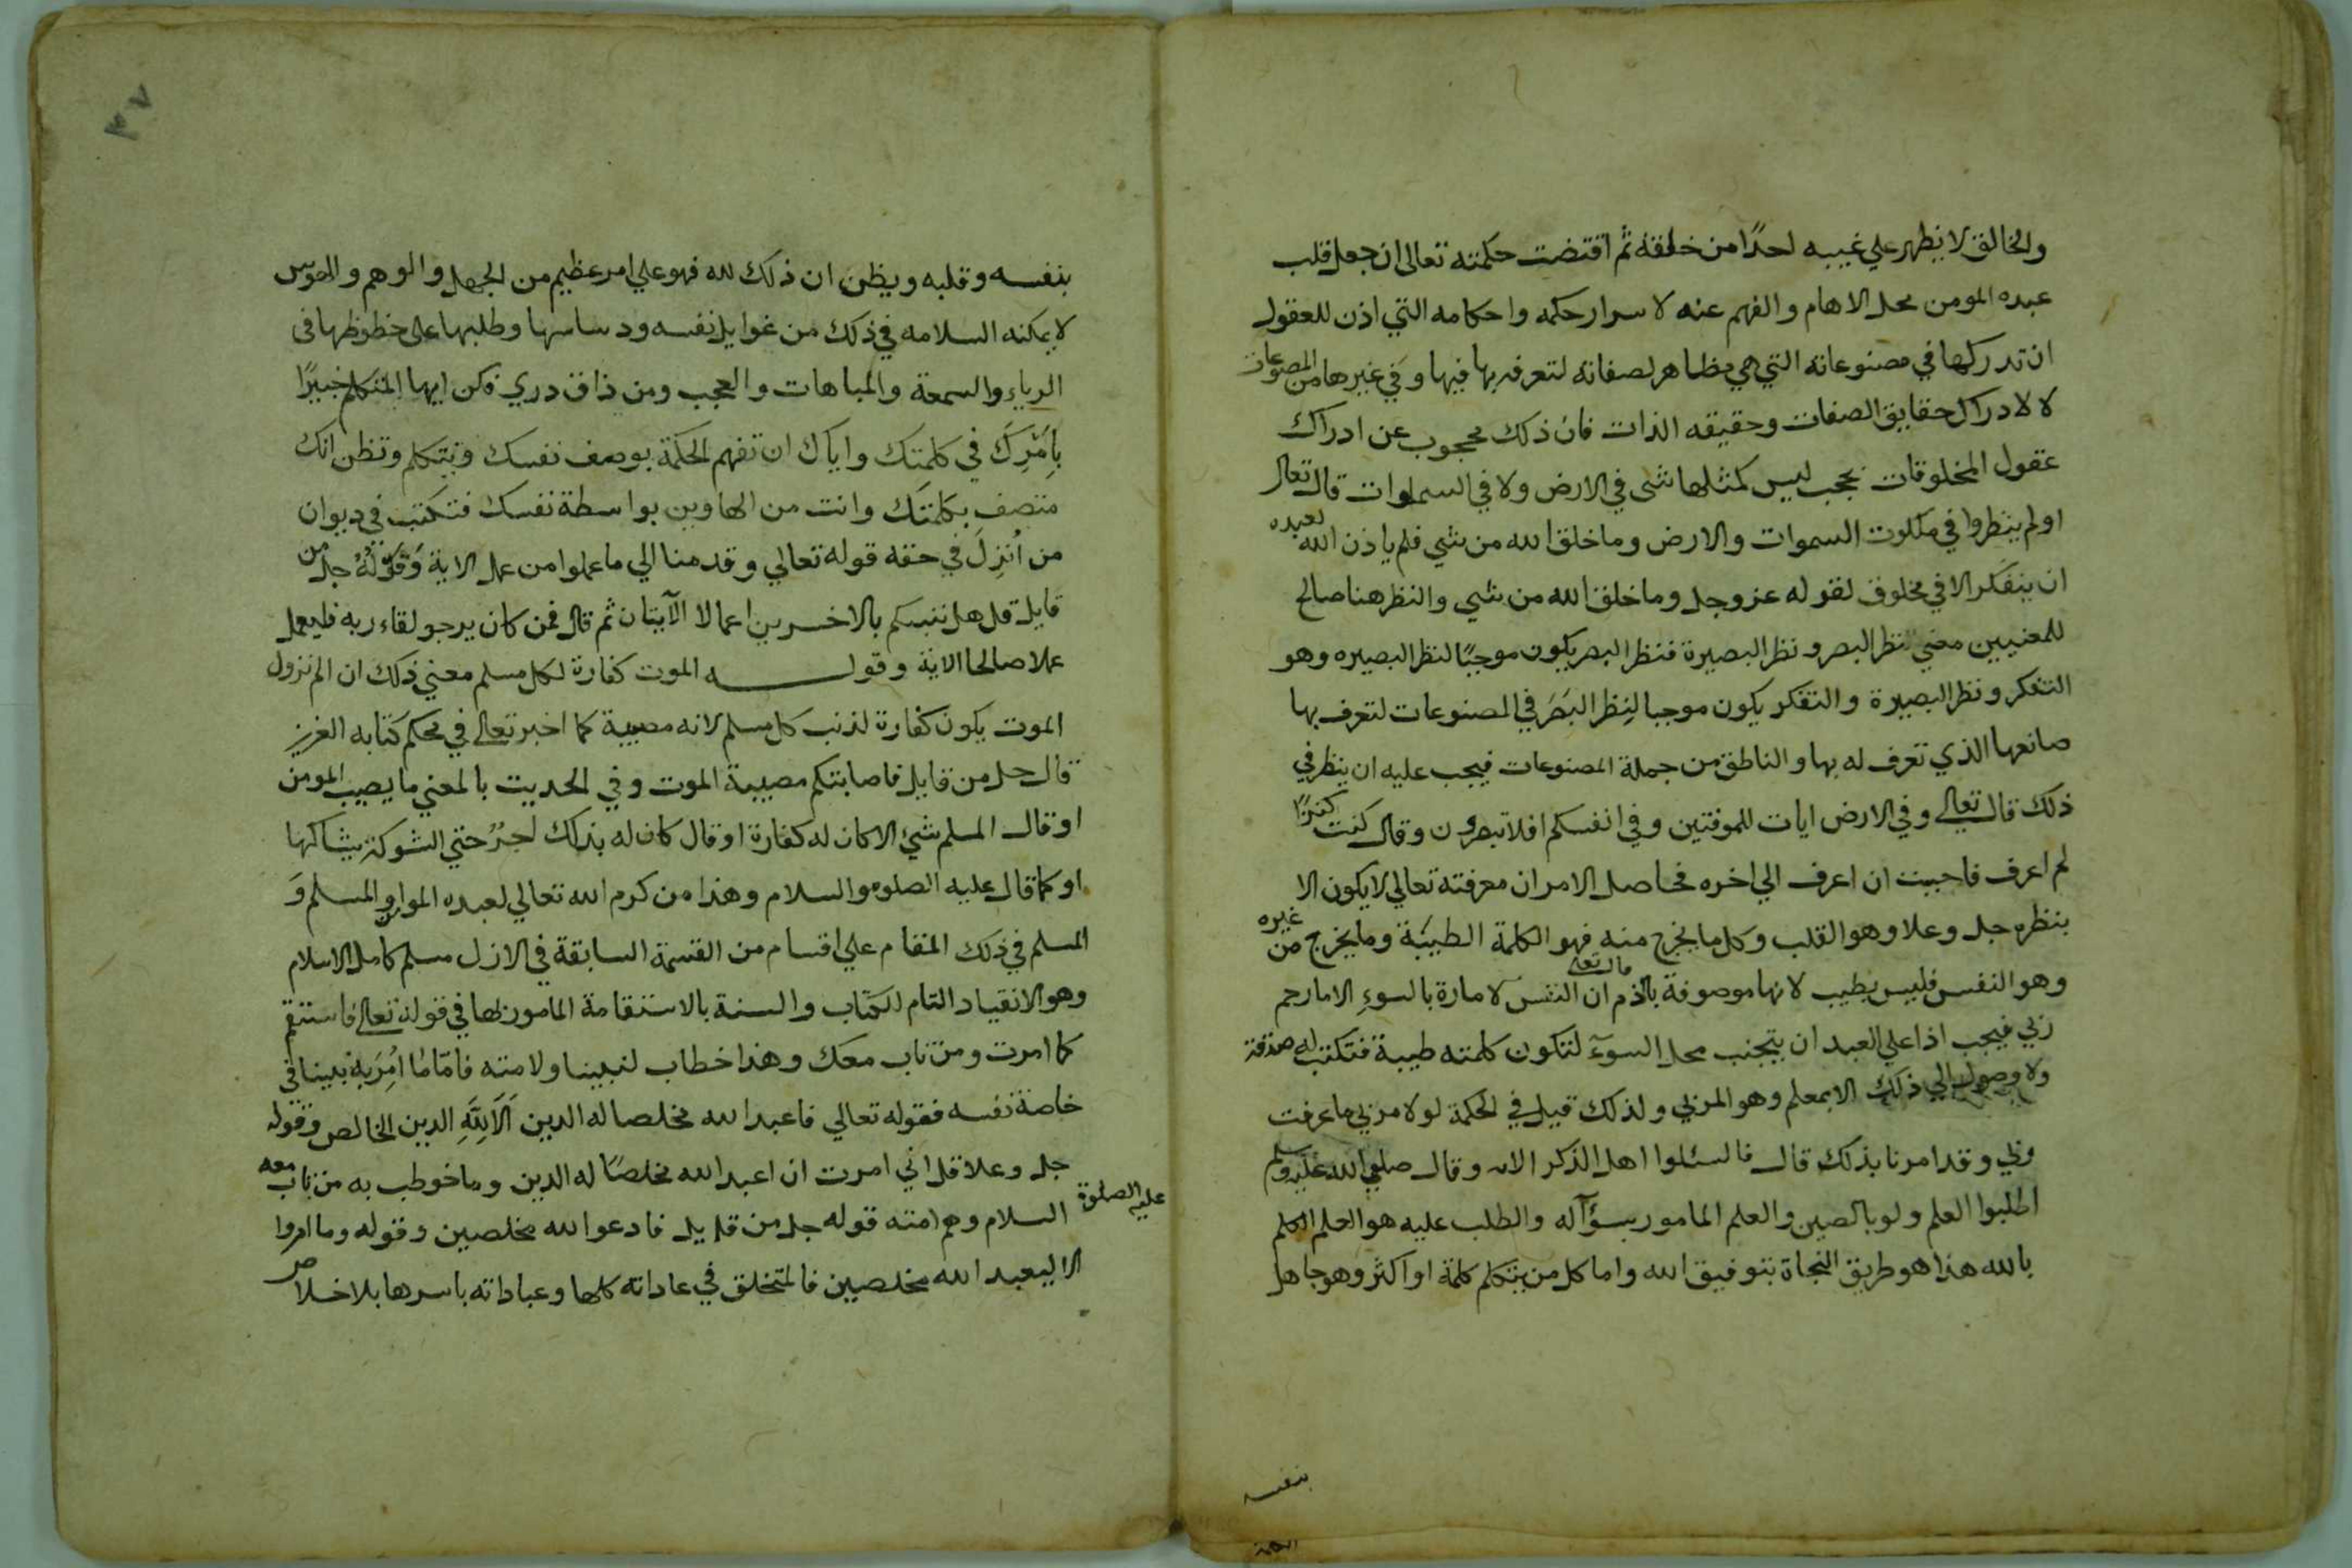 والخالق لا يظهر علي غيبه احدًا من خلقه ثم اقتضت حكمته تعالى ان جعل قلب
عبده المومن محل الالهام والفهم عنه لاسرار حكمه واحكامه التي اذن للعقول
ان تدركها في مصنوعاته التي هي مظاهر لصفاته لتعرفه بها فيها وفي غيرها من المصنوعات
لا لادراك حقايق الصفات وحقيقه الذات فان ذلك محجوب عن ادراك
عقول المخلوقات بحجب ليس كمثلها شى في الارض ولا في السموات قال تعالى
اولم ينظروا في ملكوت السموات والارض وما خلق الله من شي فلم ياذن الله لعبده
ان يتفكر الا في مخلوق لقوله عز وجل وما خلق الله من شي والنظر هنا صالح
للمعنيين معني نظر البصر ونظر البصيرة فنظر البصر يكون موجبًا لنظر البصيره وهو
التفكر ونظر البصيرة والتفكر يكون موجبا لنظر البصر في المصنوعات لتعرف بها
صانعها الذي تعرف له بها والناطق من جملة المصنوعات فيجب عليه ان ينظر في
ذلك قال تعالي وفي الارض ايات للموقنين وفي انفسكم افلا تبصرون وقال كنت كنزًا
لم اعرف فاحببت ان اعرف الي اخره فحاصل الامر ان معرفته تعالي لا يكون الا
بنظره جل وعلا وهو القلب وكل ما يخرج منه فهو الكلمة الطيبة وما يخرج من غيره
وهو النفس فليس بطيب لانها موصوفة بالذم قال تعالى ان النفس لامارة بالسوء الا ما رحم
ربي فيجب اذا علي العبد ان يتجنب محل السوء لتكون كلمته طيبة فتكتب له صدقة
ولا وصول الي ذلك الا بمعلم وهو المربي ولذلك قيل في الحكمة لولا مربي ما عرفت
ربي وقد امرنا بذلك قال فاسئلوا اهل الذكر الاية وقال صلي الله عليه وسلم
اطلبوا العلم ولو بالصين والعلم المامور بسؤآله والطلب عليه هو العلم العلم
بالله هذا هو طريق النجاة بتوفيق الله واما كل من يتكلم كلمة او اكثر وهو جاهل
بنفسه
٣٧
بنفسه وقلبه ويظن ان ذلك لله فهو علي امر عظيم من الجهل والوهم والهوس
لا يمكنه السلامه في ذلك من غوايل نفسه ودساسها وطلبها على حظوظها فى
الرياء والسمعة والمباهات والعجب ومن ذاق دري فكن ايها المتكلم خبيرًا
بامرك في كلمتك واياك ان تفهم الحكمة بوصف نفسك وتتكلم وتظن انك
متصف بكلمتك وانت من الهاوين بواسطة نفسك فتكتب في ديوان
من أنزل في حقه قوله تعالي وقدمنا الي ما عملوا من عمل الاية وقوله جل من
قايل قل هل ننبيكم بالاخسرين اعمالا الآيتان ثم قال فمن كان يرجو لقاء ربه فليعمل
عملا صالحا الاية وقوله الموت كفارة لكل مسلم معني ذلك ان الم نزول
الموت يكون كفارة لذنب كل مسلم لانه مصيبة كما اخبر تعالي في محكم كتابه العزيز
قال جل من قايل فاصابتكم مصيبة الموت وفي الحديث بالمعني ما يصيب المومن
او قال المسلم شي الا كان له كفارة او قال كان له بذلك اجرٌ حتي الشوكة يشاكها
او كما قال عليه الصلوه والسلام وهذا من كرم الله تعالي لعبده المومن او المسلم و
المسلم في ذلك المقام علي اقسام من القسمة السابقة في الازل مسلم كامل الاسلام
وهو الانقياد التام للكتاب والسنة بالاستقامة المامور بها في قوله تعالى فاستقم
كما امرت ومن تاب معك وهذا خطاب لنبينا ولامته فامّا ما اُمِرَ به نبينا في
خاصة نفسه فقوله تعالي فاعبد الله مخلصا له الدين الا لله الدين الخالص وقوله
جل وعلا قل اني امرت ان اعبد الله مخلصًا له الدين وما خوطب به من تاب معه
عليه الصلوة السلام وهم امته قوله جل من قايل فادعوا الله مخلصين وقوله وما امروا
الا ليعبدوا الله مخلصين فالمتخلق في عاداته كلها وعباداته باسرها بلا اخلاص